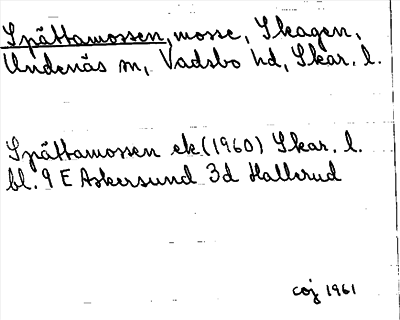 Spåttamossen, mosse, Skagen,
Undenäs sn, Vadsbo hd, Skar. l.
Spåttamossen ek (1960) Skar. l.
bl. 9 E Askersund 3d Hallerud
coj 1961